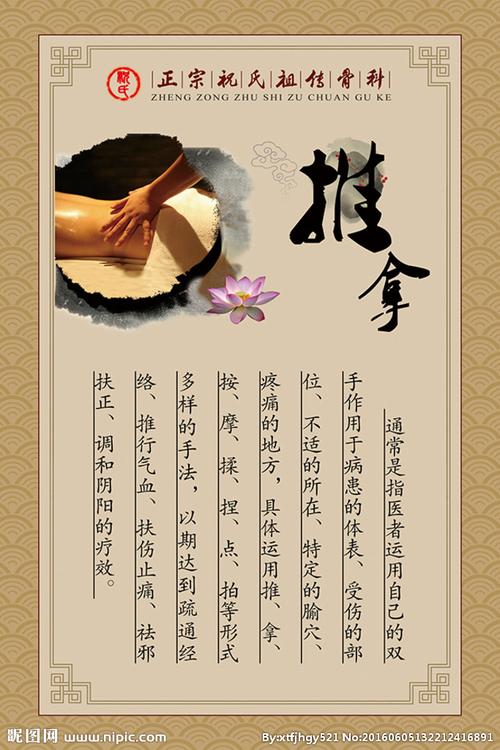 祝氏
正宗祝氏祖传骨科
ZHENG ZONG ZHU SHI ZU CHUAN GU KE
推拿
通常是指医者运用自己的双
手作用于病患的体表、受伤的部
位、不适的所在、特定的腧穴、
疼痛的地方，具体运用推、拿、
按、摩、揉、捏、点、拍等形式
多样的手法，以期达到疏通经
络、推行气血、扶伤止痛、祛邪
扶正、调和阴阳的疗效。
昵图网 www.nipic.com
By:xtfjhgy521 No:20160605132212416891